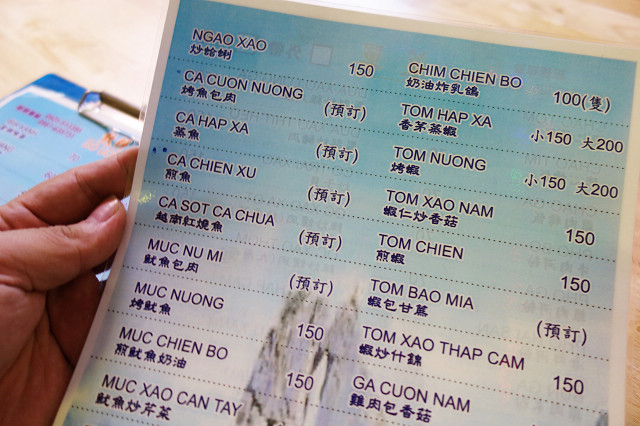 NGAO XAO
炒蛤蜊 150
CA CUON NUONG
烤魚包肉 (預訂)
CA HAP XA
蒸魚 (預訂)
CA CHIEN XU
煎魚 (預訂)
CA SOT CA CHUA
越南紅燒魚 (預訂)
MUC NU MI
魷魚包肉 (預訂)
MUC NUONG
烤魷魚 150
MUC CHIEN BO
煎魷魚奶油 150
MUC XAO CAN TAY
魷魚炒芹菜
CHIM CHIEN BO
奶油炸乳鴿 100(隻)
TOM HAP XA
香茅蒸蝦 小150 大200
TOM NUONG
烤蝦 小150 大200
TOM XAO NAM
蝦仁炒香菇 150
TOM CHIEN
煎蝦 150
TOM BAO MIA
蝦包甘蔗 (預訂)
TOM XAO THAP CAM
蝦炒什錦 150
GA CUON NAM
雞肉包香菇